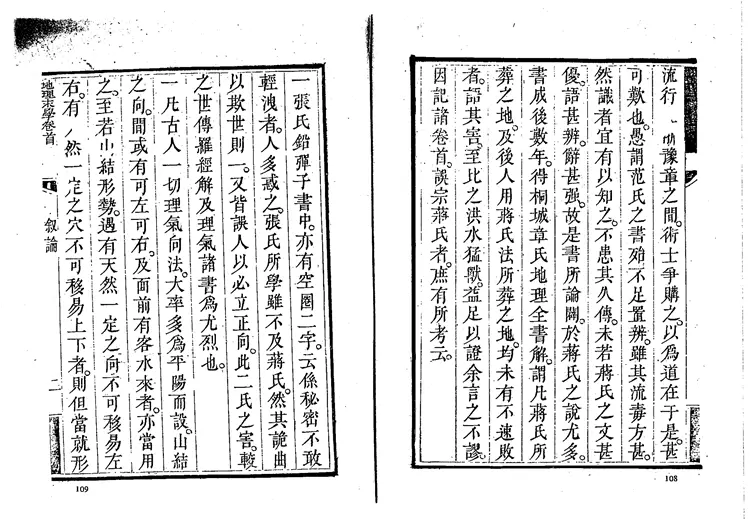 流行 豫章之間。術士爭購之。以爲道在于是。甚
可歎也。愚謂范氏之書殆不足置辨。雖其流毒方甚。
然識者宜有以知之。不患其久傳。未若蔣氏之文甚
優。語甚辨。辭甚强。故是書所論闢。於蔣氏之說尤多。
書成後數年。得桐城章氏地理全書解。謂凡蔣氏所
葬之地。及後人用蔣氏法所葬之地。均未有不速敗
者。語其害。至比之洪水猛獸。益足以證余言之不謬。
因記諸卷首。誤宗蔣氏者。庶有所考云。
108
一張氏鉛彈子書中。亦有空圈二字。云係秘密不敢
輕洩者。人多惑之。張氏所學雖不及蔣氏。然其詭曲
以欺世則一。又皆誤人以必立正向。此二氏之害。較
之世傳羅經解及理氣諸書爲尤烈也。
一凡古人一切理氣向法。大率多爲平陽而設。山結
之向。間或有可左可右。及面前有客水來者。亦當用
之。至若山結形勢。遇有天然一定之向不可移易左
右。有 然一定之穴不可移易上下者。則但當就形
地理末學卷首
叙論
二
109